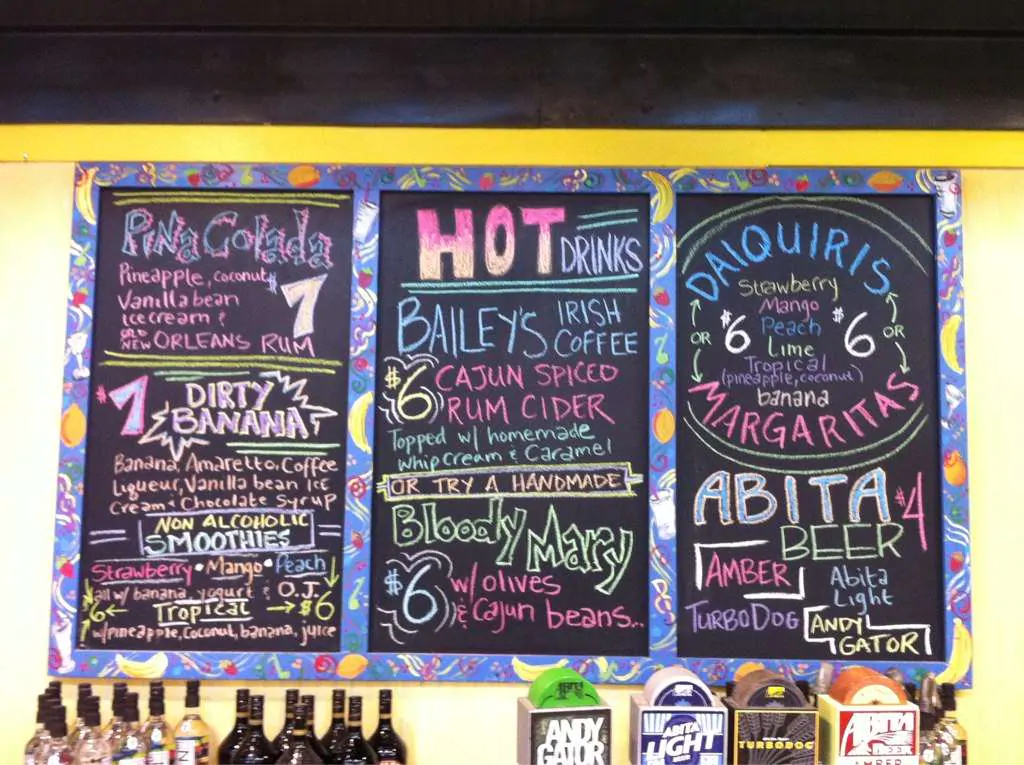 Piña Colada
Pineapple, coconut
Vanilla bean
ice cream &
OLD NEW ORLEANS RUM
$7
$7
DIRTY
BANANA
Banana, Amaretto, Coffee
Liqueur, Vanilla bean Ice
Cream & Chocolate Syrup
NON ALCOHOLIC
SMOOTHIES
Strawberry • Mango • Peach
all w/ banana, yogurt & O.J.
$6 Tropical $6
w/pineapple, Coconut, banana, juice
HOT DRINKS
BAILEY'S IRISH COFFEE
$6 CAJUN SPICED
RUM CIDER
Topped w/ homemade
Whip Cream & Caramel
OR TRY A HANDMADE
Bloody Mary
$6 w/ olives
& Cajun beans...
DAIQUIRIS
Strawberry
Mango
OR $6 Peach $6 OR
Lime
Tropical
(pineapple, coconut)
banana
MARGARITAS
ABITA $4
BEER
AMBER
Abita
Light
TURBODOG
ANDY
GATOR
ANDY
GATOR
ABITA
LIGHT
TURBODOG
ABITA
BEER
AMBER